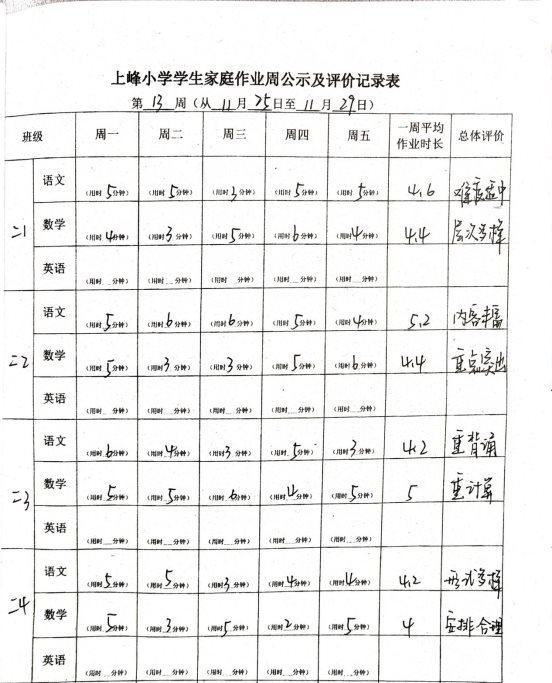 上峰小学学生家庭作业周公示及评价记录表
第 13 周（从 11 月 25 日至 11 月 29 日）
班级 周一 周二 周三 周四 周五 一周平均作业时长 总体评价
二1 语文 （用时 5 分钟） （用时 5 分钟） （用时 3 分钟） （用时 5 分钟） （用时 5 分钟） 4.6 难度适中
数学 （用时 4 分钟） （用时 3 分钟） （用时 5 分钟） （用时 6 分钟） （用时 4 分钟） 4.4 层次多样
英语 （用时 分钟） （用时 分钟） （用时 分钟） （用时 分钟） （用时 分钟）
二2 语文 （用时 5 分钟） （用时 6 分钟） （用时 6 分钟） （用时 5 分钟） （用时 4 分钟） 5.2 内容丰富
数学 （用时 5 分钟） （用时 3 分钟） （用时 3 分钟） （用时 5 分钟） （用时 6 分钟） 4.4 重点突出
英语 （用时 分钟） （用时 分钟） （用时 分钟） （用时 分钟） （用时 分钟）
二3 语文 （用时 6 分钟） （用时 4 分钟） （用时 3 分钟） （用时 5 分钟） （用时 3 分钟） 4.2 重背诵
数学 （用时 5 分钟） （用时 5 分钟） （用时 6 分钟） （用时 4 分钟） （用时 5 分钟） 5 重计算
英语 （用时 分钟） （用时 分钟） （用时 分钟） （用时 分钟） （用时 分钟）
二4 语文 （用时 5 分钟） （用时 5 分钟） （用时 3 分钟） （用时 4 分钟） （用时 4 分钟） 4.2 形式多样
数学 （用时 5 分钟） （用时 3 分钟） （用时 5 分钟） （用时 2 分钟） （用时 5 分钟） 4 安排合理
英语 （用时 分钟） （用时 分钟） （用时 分钟） （用时 分钟） （用时 分钟）